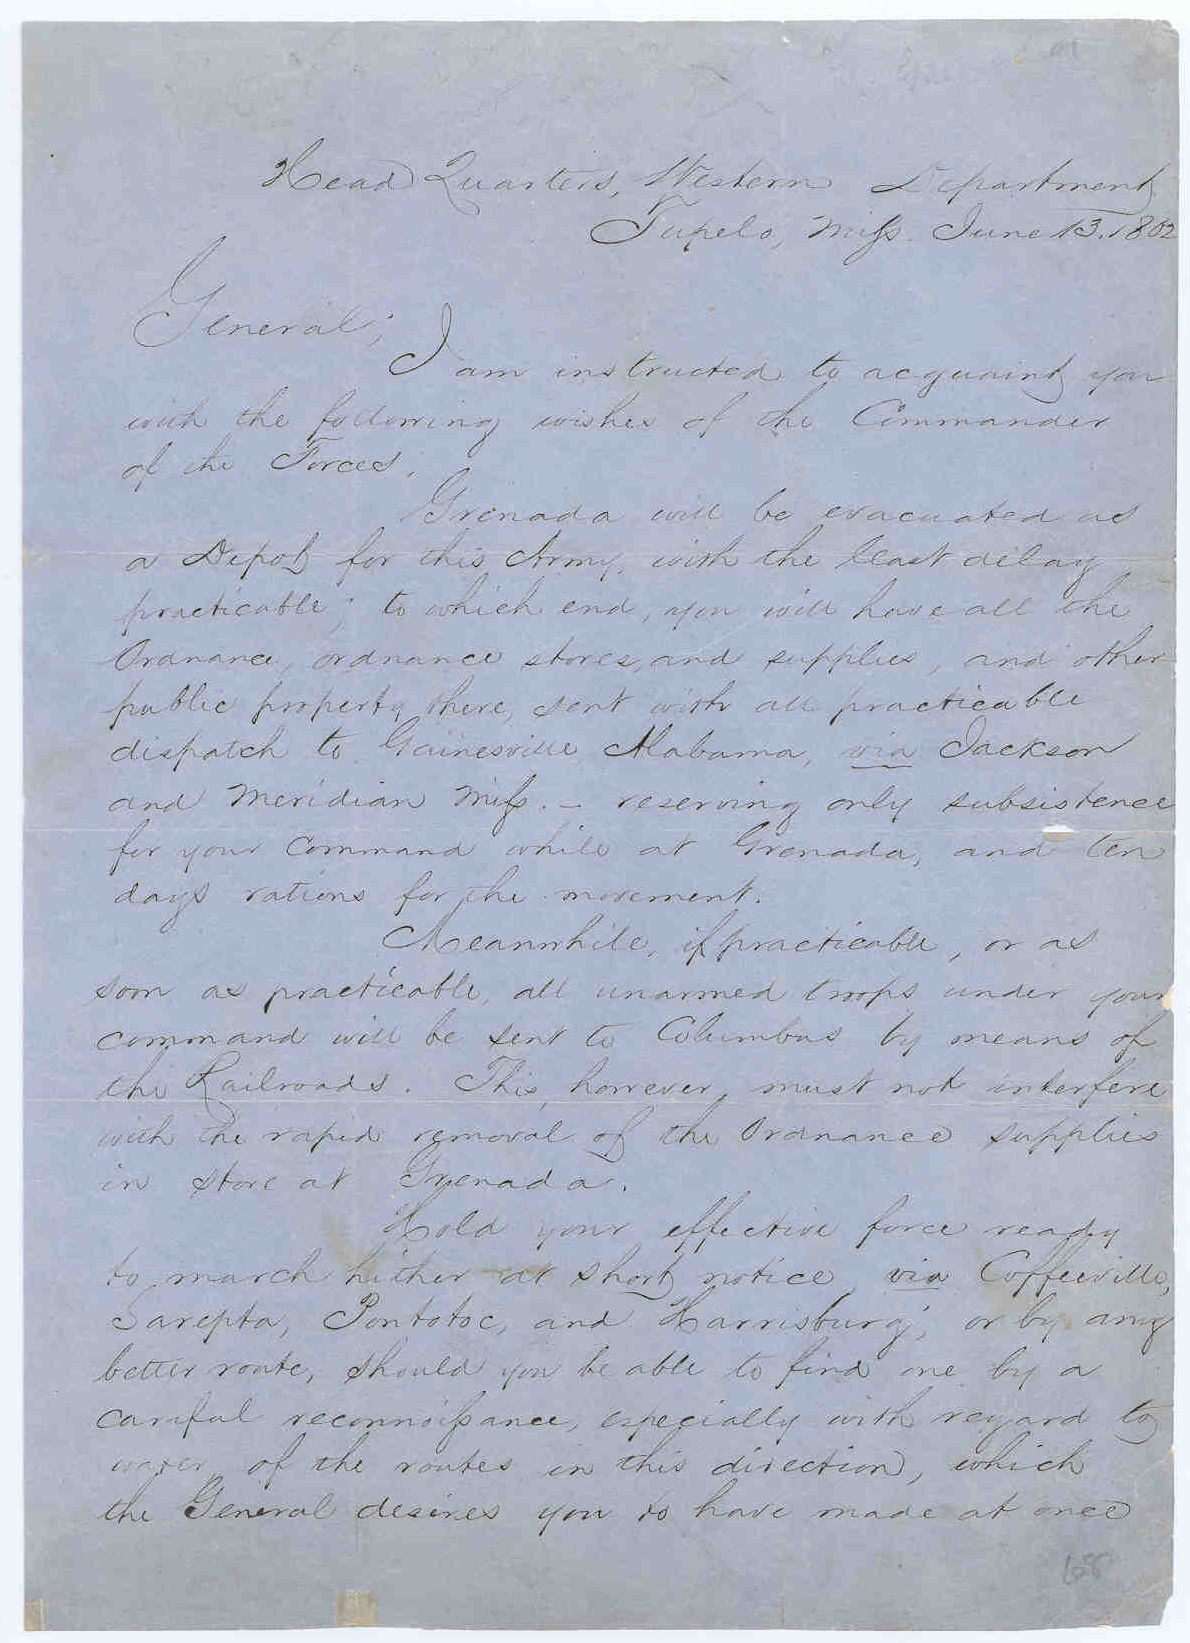 Head Quarters, Western Department
Tupelo, Miss. June 13. 1862
General;
I am instructed to acquaint you
with the following wishes of the Commander
of the Forces.
Grenada will be evacuated as
a Depot for this Army, with the least delay
practicable; to which end, you will have all the
Ordnance, ordnance stores, and supplies, and other
public property there, sent with all practicable
dispatch to Gainesville, Alabama, via Jackson
and Meridian Miss. – reserving only subsistence
for your Command while at Grenada, and ten
days rations for the movement.
Meanwhile, if practicable, or as
soon as practicable, all unarmed troops under your
command will be sent to Columbus by means of
the Railroads. This, however, must not interfere
with the rapid removal of the Ordnance supplies
in store at Grenada.
Hold your effective force ready
to march hither at short notice, via Coffeeville,
Sarepta, Pontotoc, and Harrisburg; or by any
better route, should you be able to find one by a
careful reconnoissance, especially with regard to
water, of the routes in this direction, which
the General desires you to have made at once